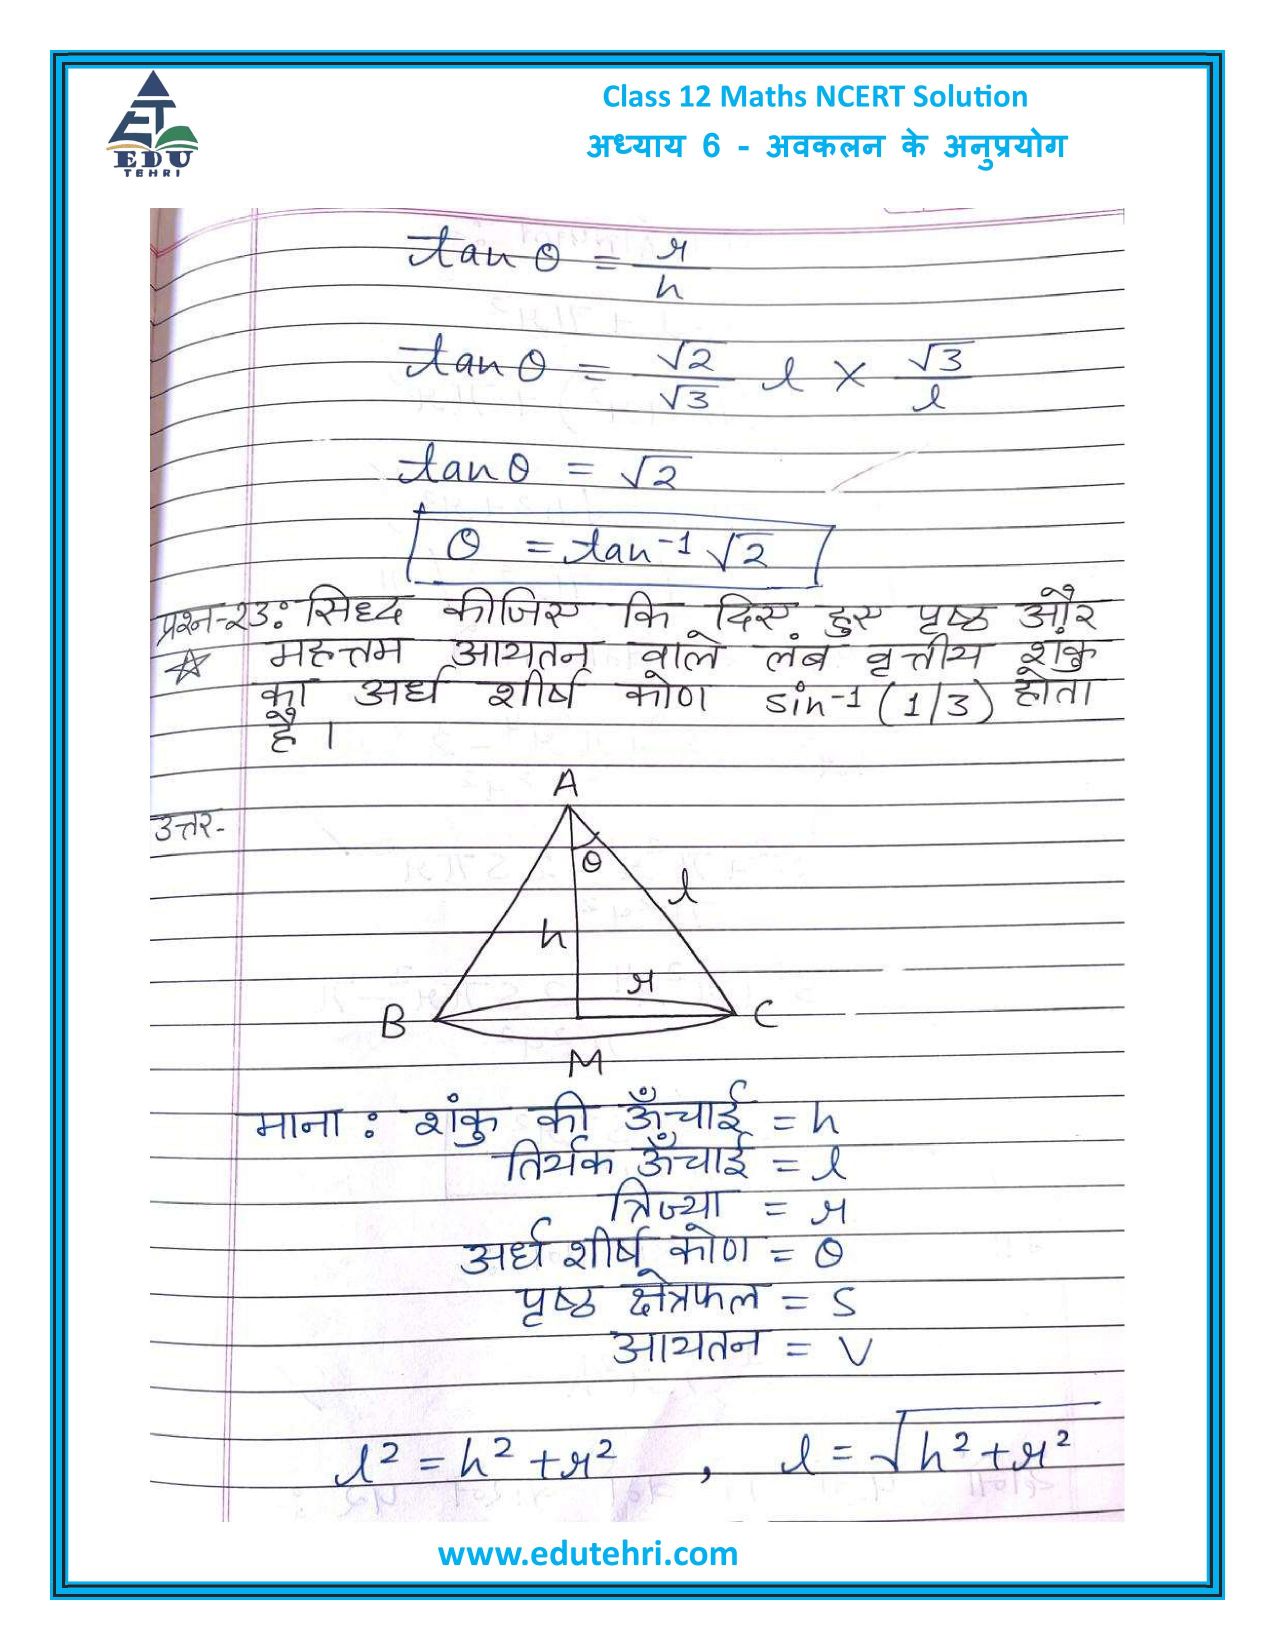 ET
EDU
TEHRI
Class 12 Maths NCERT Solution
अध्याय 6 - अवकलन के अनुप्रयोग
tan θ = r/h
tan θ = √2/√3 l × √3/l
tan θ = √2
θ = tan⁻¹ √2
प्रश्न-23: सिध्द कीजिए कि दिए हुए पृष्ठ और
महत्तम आयतन वाले लंब वृत्तीय शंकु
का अर्ध शीर्ष कोण sin⁻¹ (1/3) होता
है ।
उत्तर-
A
θ
l
h
r
B
C
M
माना : शंकु की ऊँचाई = h
तिर्यक ऊँचाई = l
त्रिज्या = r
अर्ध शीर्ष कोण = θ
पृष्ठ क्षेत्रफल = S
आयतन = V
l² = h² + r² , l = √h² + r²
www.edutehri.com